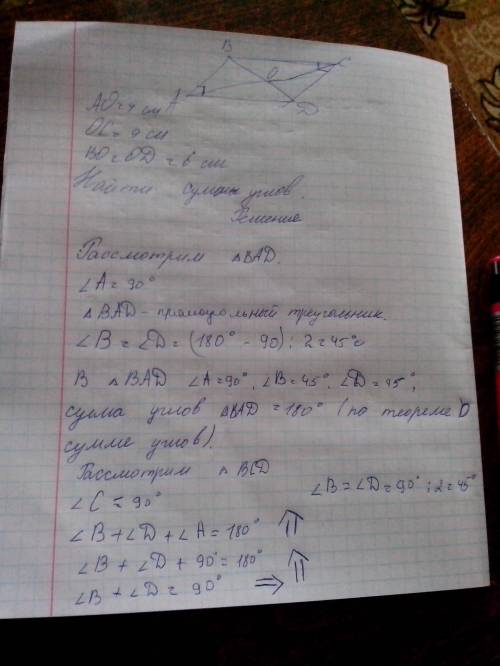 B
C
O
A
D
AO = 4 см
OC = 9 см
BO = OD = 6 см
Найти сумму углов.
Решение
Рассмотрим △BAD.
∠A = 90°
△BAD - прямоугольный треугольник.
∠B = ∠D = (180° - 90) : 2 = 45°
В △BAD ∠A = 90°, ∠B = 45°, ∠D = 45°,
сумма углов △BAD = 180° (по теореме о
сумме углов).
Рассмотрим △BCD
∠C = 90°
∠B = ∠D = 90° : 2 = 45°
∠B + ∠D + ∠A = 180° ⇑
∠B + ∠D + 90° = 180° ⇑
∠B + ∠D = 90° ⇒